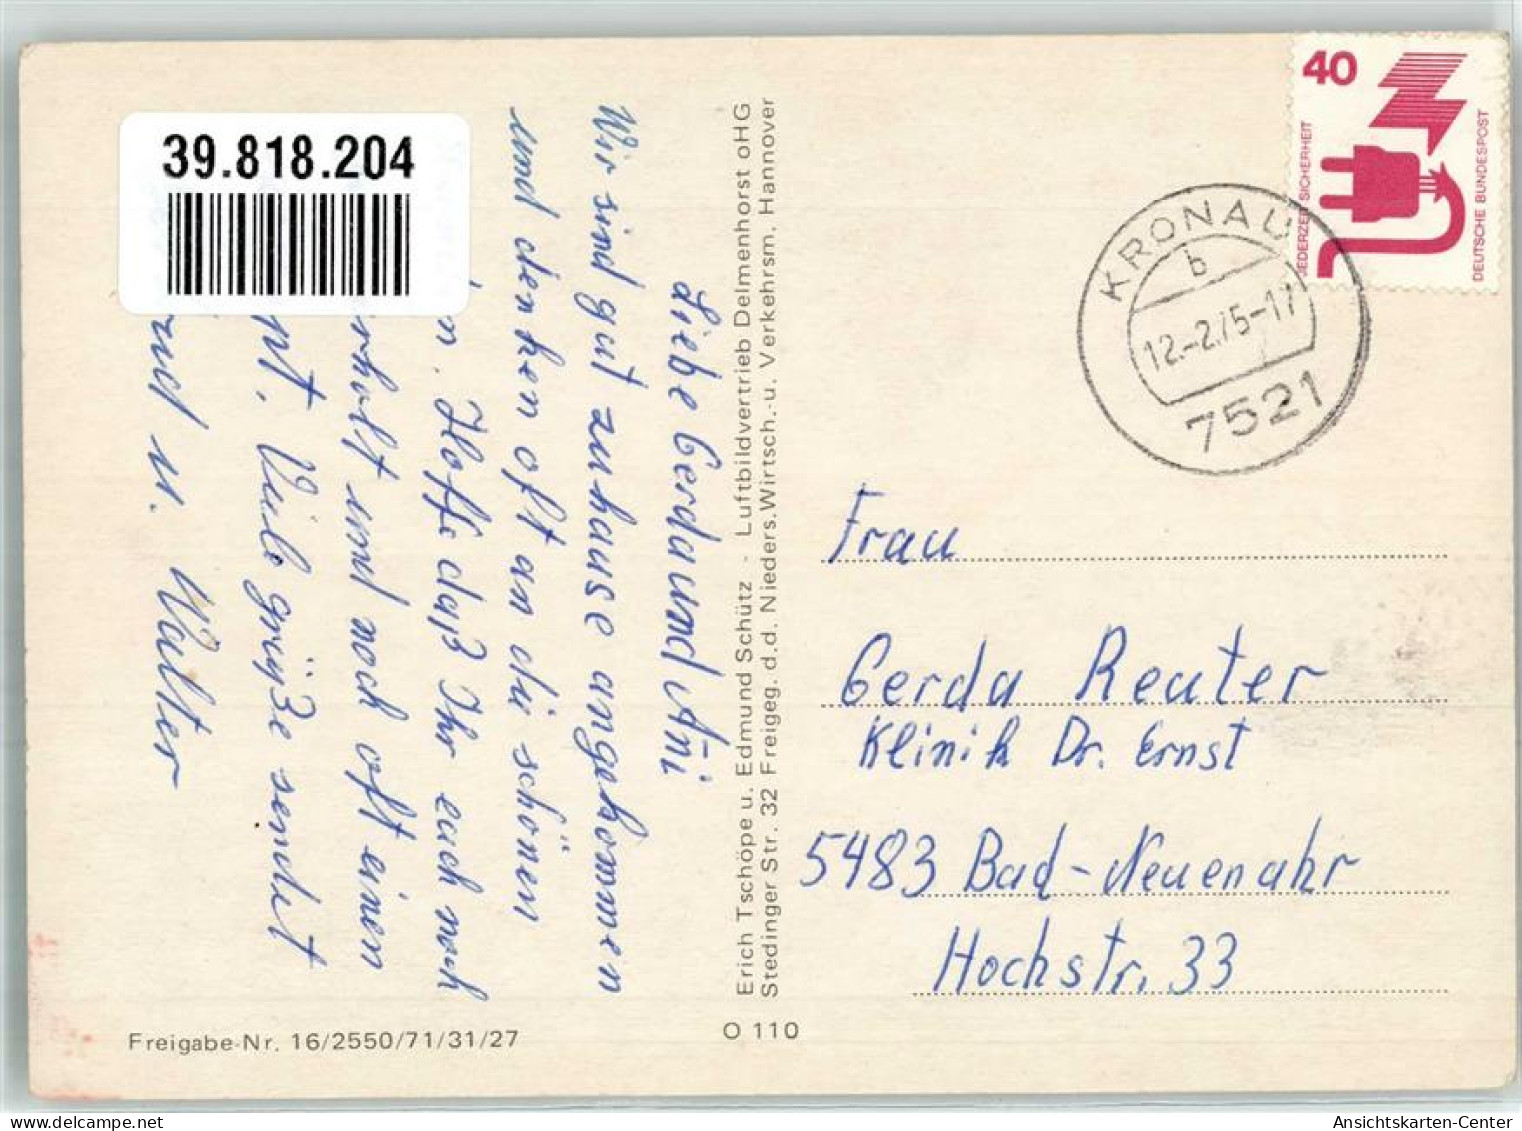 39.818.204
Liebe Gerda und Ani
Wir sind gut zuhause angekommen
und denken oft an die schönen
n. Hoffe daß Ihr euch noch
rholt und noch oft einen
pt. Viele grüße sendet
rud u. Walter
Erich Tschöpe u. Edmund Schütz · Luftbildvertrieb Delmenhorst oHG
Stedinger Str. 32 Freigeg. d.d. Nieders.Wirtsch.-u. Verkehrsm. Hannover
Freigabe-Nr. 16/2550/71/31/27
O 110
40
JEDERZEIT SICHERHEIT
DEUTSCHE BUNDESPOST
KRONAU
b
12.-2.75-17
7521
Frau
Gerda Reuter
Klinik Dr. Ernst
5483 Bad-Neuenahr
Hochstr. 33
delcampe.net
Ansichtskarten-Center